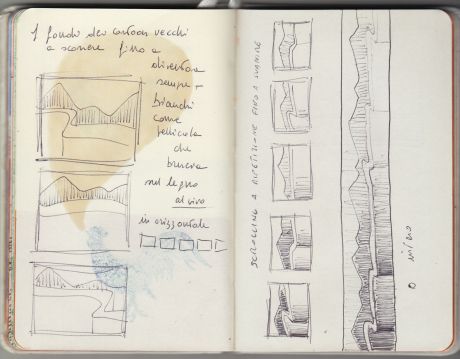 I fondo dei cartoon vecchi
a scorrere fino a
diventare
sempre +
bianchi
come
pellicola
che
brucia
sul legno
al vivo
in orizzontale
SCROLLING A RIPETIZIONE FINO A SVANIRE